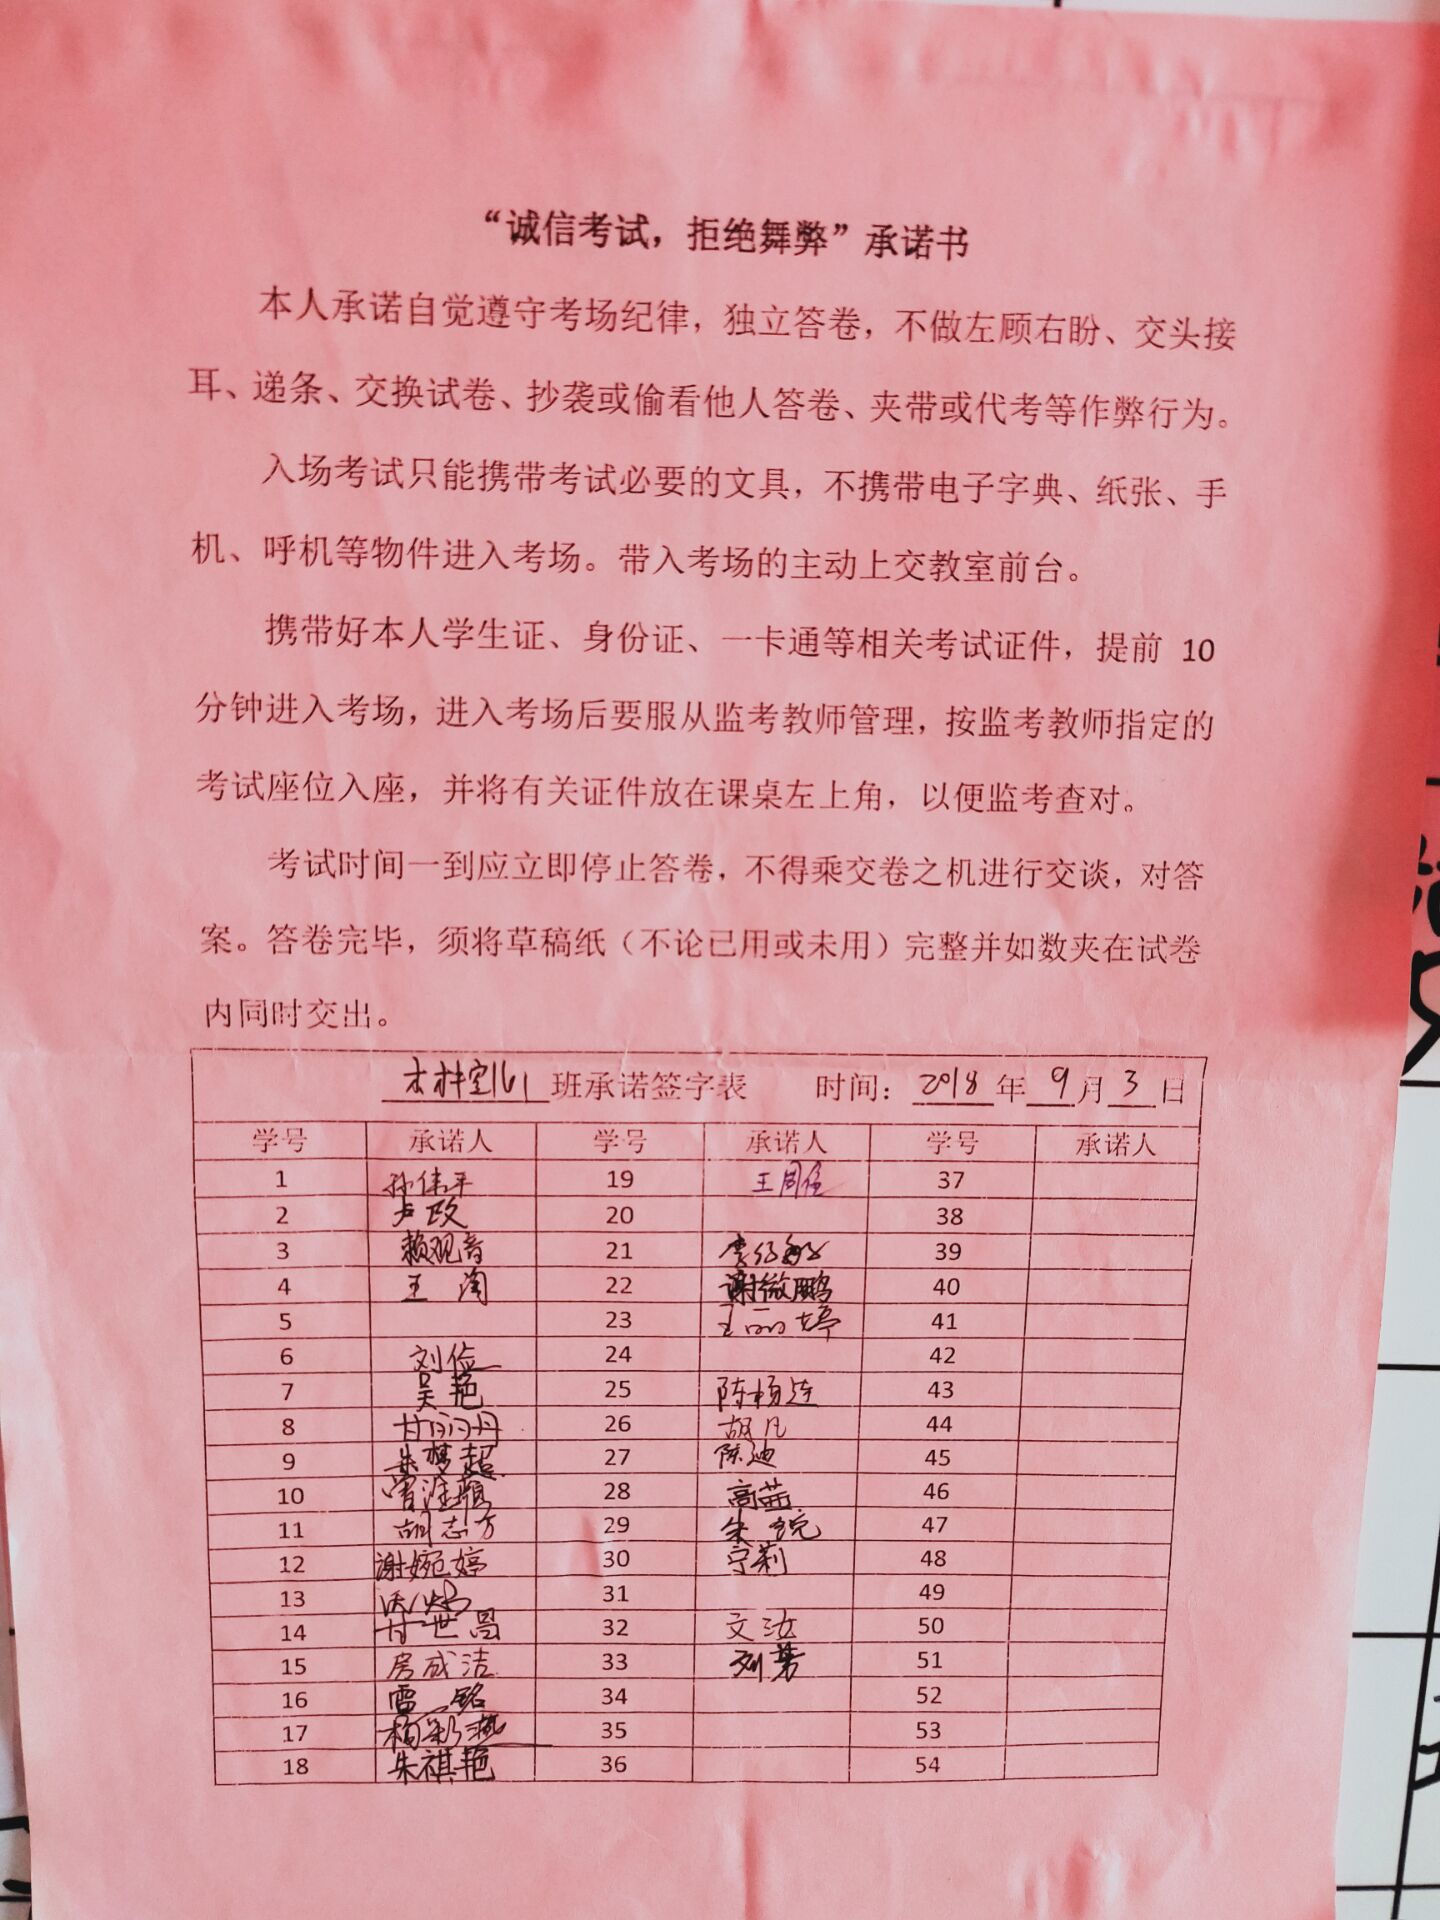 “诚信考试，拒绝舞弊”承诺书
本人承诺自觉遵守考场纪律，独立答卷，不做左顾右盼、交头接
耳、递条、交换试卷、抄袭或偷看他人答卷、夹带或代考等作弊行为。
入场考试只能携带考试必要的文具，不携带电子字典、纸张、手
机、呼机等物件进入考场。带入考场的主动上交教室前台。
携带好本人学生证、身份证、一卡通等相关考试证件，提前 10
分钟进入考场，进入考场后要服从监考教师管理，按监考教师指定的
考试座位入座，并将有关证件放在课桌左上角，以便监考查对。
考试时间一到应立即停止答卷，不得乘交卷之机进行交谈，对答
案。答卷完毕，须将草稿纸（不论已用或未用）完整并如数夹在试卷
内同时交出。
班承诺签字表 时间：2018年9月3日
学号 承诺人 学号 承诺人 学号 承诺人
1 孙伟平 19 37
2 卢政 20 38
3 赖观音 21 39
4 王 22 谢微鹏 40
5 23 王丽婷 41
6 刘俭 24 42
7 吴艳 25 陈杨连 43
8 甘丽丹 26 胡凡 44
9 朱梦超 27 陈迪 45
10 28 高茜 46
11 胡志方 29 朱锐 47
12 谢婉婷 30 宁莉 48
13 31 49
14 甘世昌 32 文汝 50
15 房成洁 33 刘芳 51
16 雷铭 34 52
17 杨彩燕 35 53
18 朱祺艳 36 54